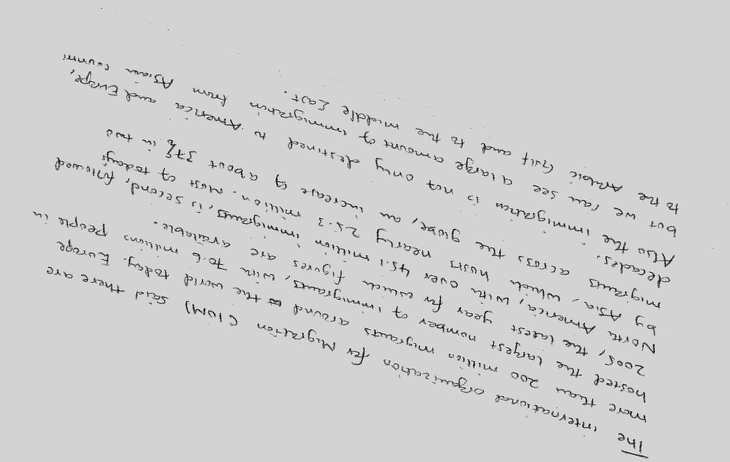 The international organization for Migration (IOM) said there are
more than 200 million migrants around the world today. Europe
hosted the largest number of immigrants, with 70.6 millions People in
2005, the latest year for which figures are available.
North America, with over 45.1 million immigrants, is second, followed
by Asia, which hosts nearly 25.3 million. Most of todays
migrants across the globe, an increase of about 37% in two
decades.
Also the immigration is not only destined to America and Europe,
but we can see a large amount of immigration from Asian
to the Arabic Gulf and to the middle East.